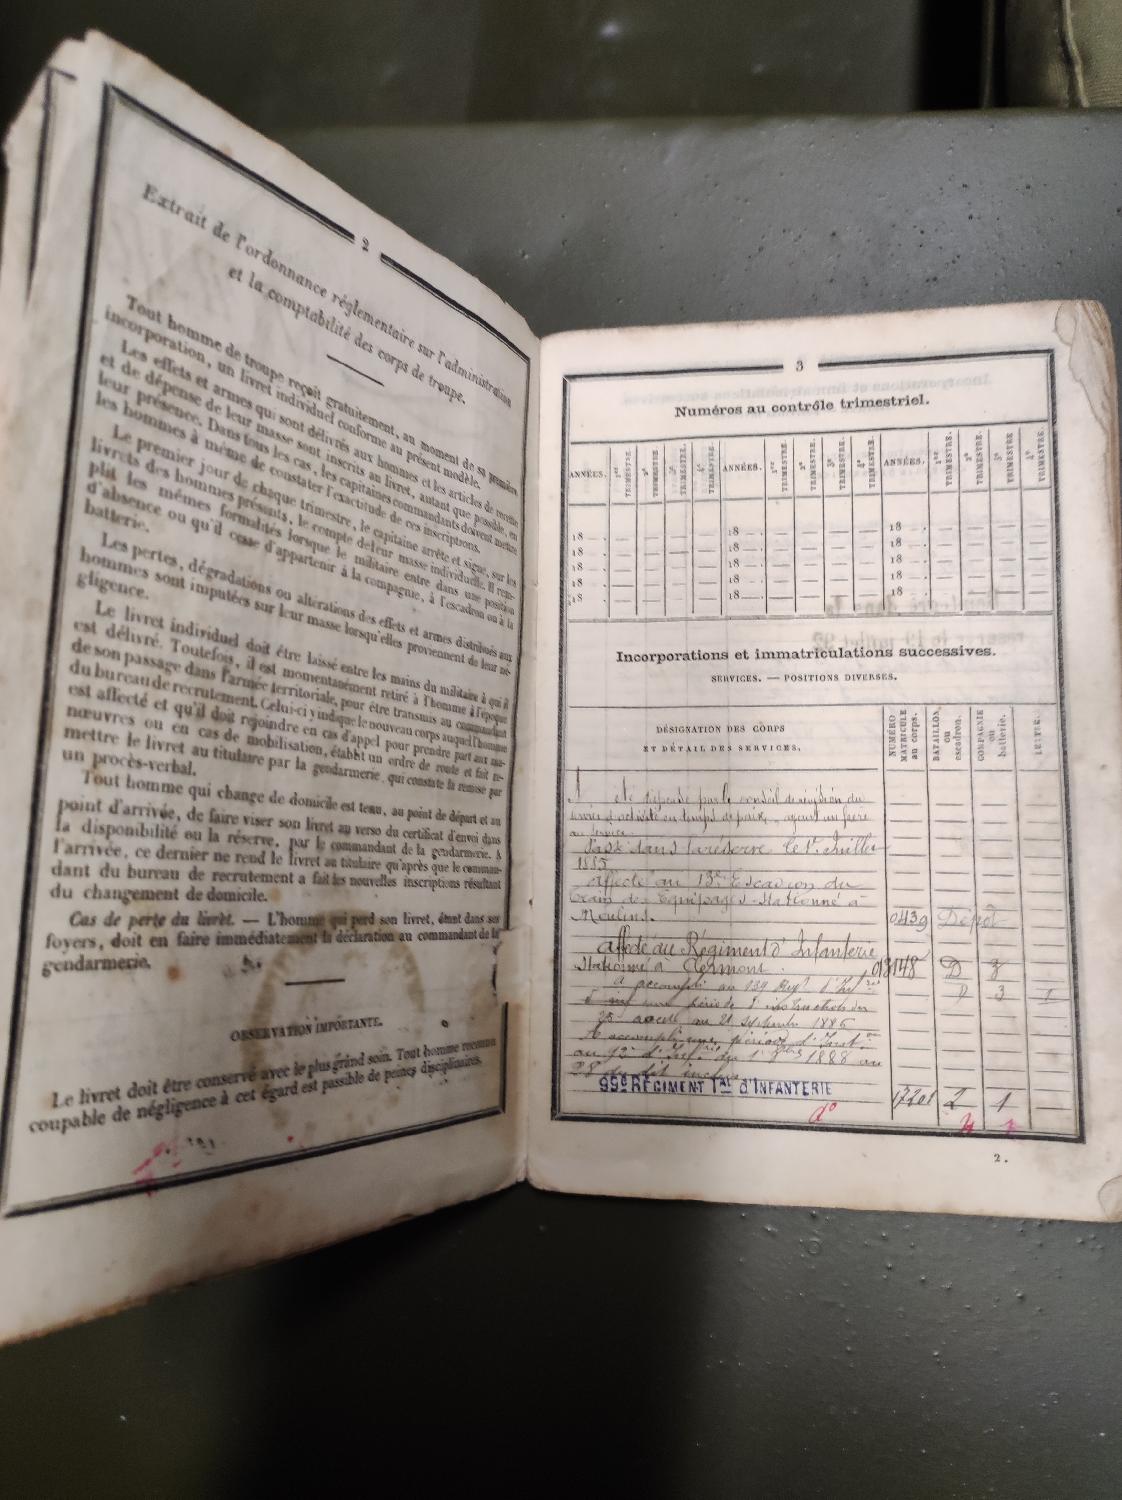 2
Extrait de l'ordonnance réglementaire sur l'administration
et la comptabilité des corps de troupe.
Tout homme de troupe reçoit gratuitement, au moment de sa première
incorporation, un livret individuel conforme au présent modèle.
Les effets et armes qui sont délivrés aux hommes et les articles de recette
et de dépense de leur masse sont inscrits au livret, autant que possible, en
leur présence. Dans tous les cas, les capitaines commandants doivent mettre
les hommes à même de constater l'exactitude de ces inscriptions.
Le premier jour de chaque trimestre, le capitaine arrête et signe, sur les
livrets des hommes présents, le compte de leur masse individuelle. Il rem-
plit les mêmes formalités lorsque le militaire entre dans une position
d'absence ou qu'il cesse d'appartenir à la compagnie, à l'escadron ou à la
batterie.
Les pertes, dégradations ou altérations des effets et armes distribués aux
hommes sont imputées sur leur masse lorsqu'elles proviennent de leur né-
gligence.
Le livret individuel doit être laissé entre les mains du militaire à qui il
est délivré. Toutefois, il est momentanément retiré à l'homme à l'époque
de son passage dans l'armée territoriale, pour être transmis au commandant
du bureau de recrutement. Celui-ci y indique le nouveau corps auquel l'homme
est affecté et qu'il doit rejoindre en cas d'appel pour prendre part aux ma-
nœuvres ou en cas de mobilisation, établit un ordre de route et fait re-
mettre le livret au titulaire par la gendarmerie, qui constate la remise par
un procès-verbal.
Tout homme qui change de domicile est tenu, au point de départ et au
point d'arrivée, de faire viser son livret au verso du certificat d'envoi dans
la disponibilité ou la réserve, par le commandant de la gendarmerie. A
l'arrivée, ce dernier ne rend le livret au titulaire qu'après que le comman-
dant du bureau de recrutement a fait les nouvelles inscriptions résultant
du changement de domicile.
Cas de perte du livret. — L'homme qui perd son livret, étant dans ses
foyers, doit en faire immédiatement la déclaration au commandant de la
gendarmerie.
OBSERVATION IMPORTANTE.
Le livret doit être conservé avec le plus grand soin. Tout homme reconnu
coupable de négligence à cet égard est passible de peines disciplinaires.
3
Numéros au contrôle trimestriel.
ANNÉES. 1er TRIMESTRE. 2e TRIMESTRE. 3e TRIMESTRE. 4e TRIMESTRE. ANNÉES. 1er TRIMESTRE. 2e TRIMESTRE. 3e TRIMESTRE. 4e TRIMESTRE. ANNÉES. 1er TRIMESTRE. 2e TRIMESTRE. 3e TRIMESTRE 4e TRIMESTRE.
18 18 18
18 18 18
18 18 18
18 18 18
18 18 18
Incorporations et immatriculations successives.
SERVICES. — POSITIONS DIVERSES.
DÉSIGNATION DES CORPS
ET DÉTAIL DES SERVICES.
NUMÉRO MATRICULE au corps.
BATAILLON ou escadron.
COMPAGNIE ou batterie.
LETTRE.
A été dispensé par le conseil de révision du
service d'activité en temps de paix, ayant un frère
au service.
Passé dans la réserve le 1er Juillet
1885
Affecté au 13e Escadron du
Train des Equipages Stationné à
Moulins. 0439 Dépôt
affecté au Régiment d'Infanterie
Stationné à Clermont. 018148 D 3
A accompli au 139 Regt d'Inf D 3 1
une période d'instruction du
25 août au 21 septembre 1886
A accompli une période d'Inst.
au 92 d'Inf. du 1er 1888 au
28 du dit inclus
99e RÉGIMENT Tal D'INFANTERIE 2 1
do
2.